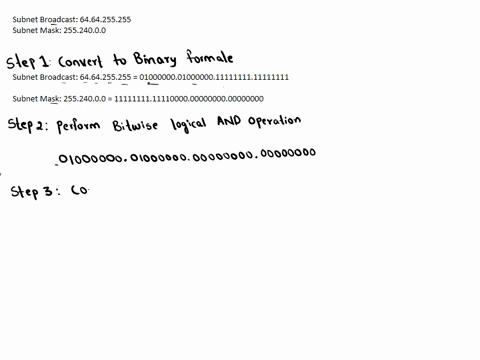 Subnet Broadcast: 64.64.255.255
Subnet Mask: 255.240.0.0
Step 1: Convert to Binary formale
Subnet Broadcast: 64.64.255.255 = 01000000.01000000.11111111.11111111
Subnet Mask: 255.240.0.0 = 11111111.11110000.00000000.00000000
Step 2: Perform Bitwise logical AND operation
01000000.01000000.00000000.00000000
Step 3: Co